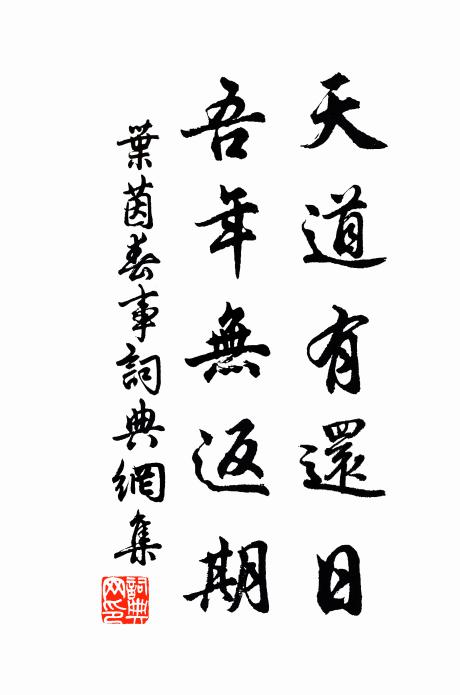 天道有還日
吾年無返期
葉茵春事詞典網集
詞典网印